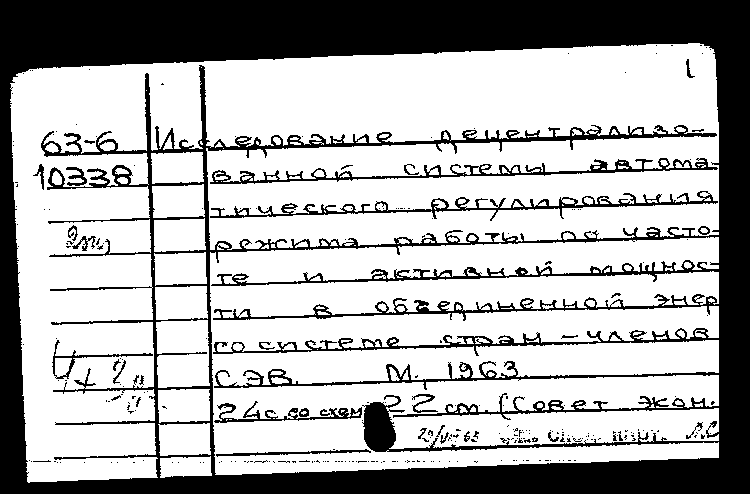 1
63-6 Исследование децентрализо-
10338 ванной системы автома-
тического регулирования
режима работы по часто-
те и активной мощнос-
ти в объединенной энер
госистеме стран - членов
СЭВ. М., 1963
24с. со схем 22 см. (Совет экон.